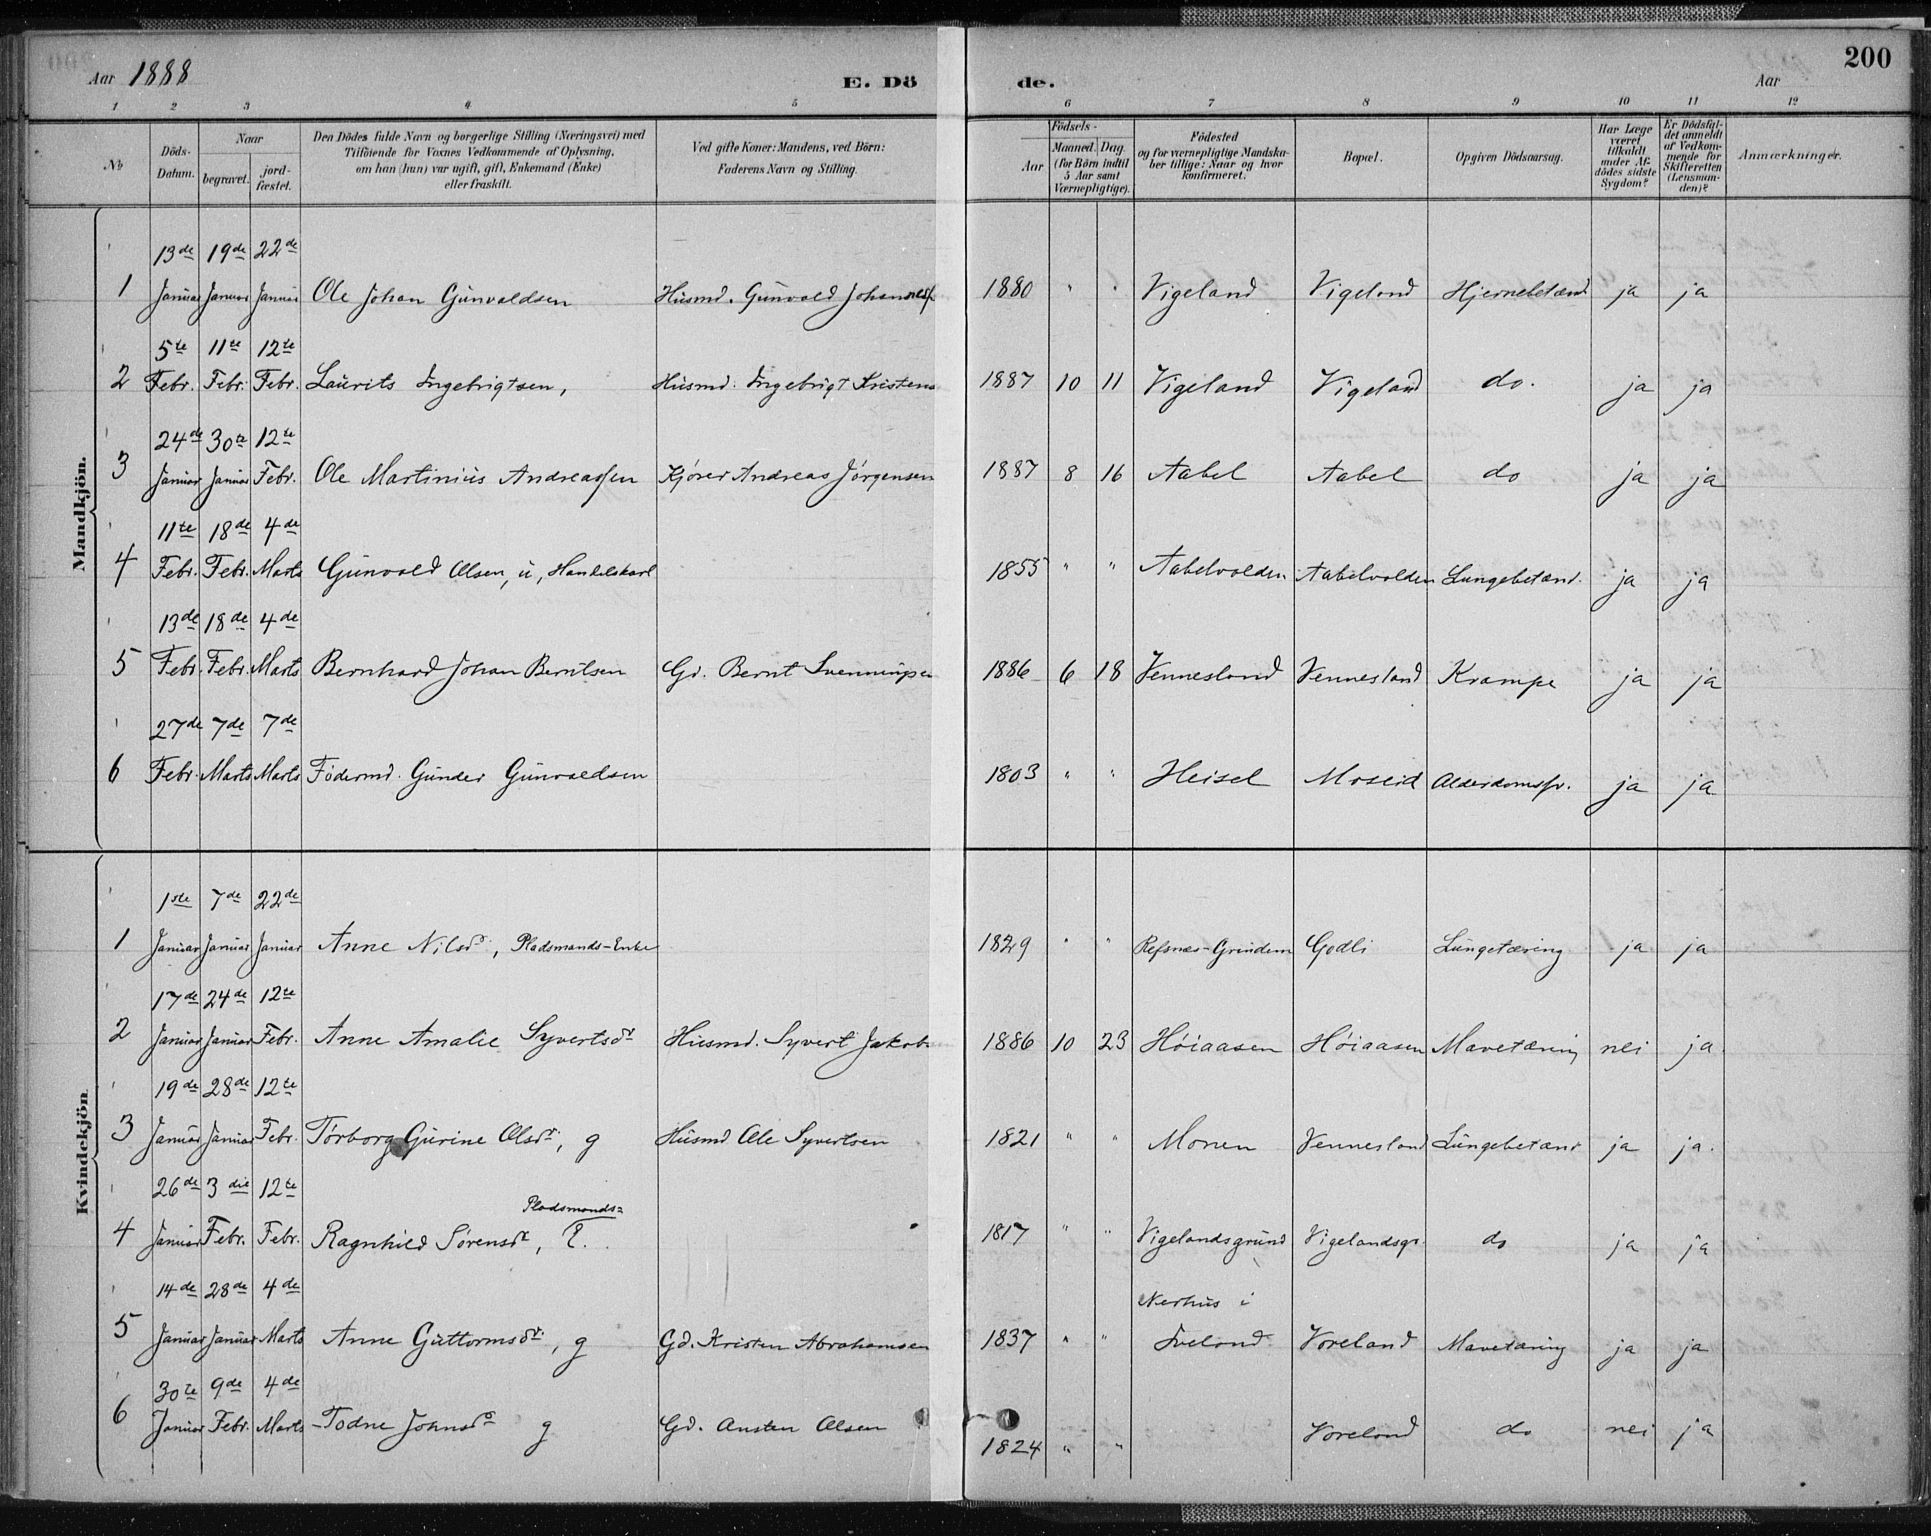 Aar 1888 E. Dö de. Aar 200
1 2 3 4 5 6 7 8 9 10 11 12
№ Döds-Datum. Naar begravet. jord-fæstet. Den Dödes fulde Navn og borgerlige Stilling (Næringsvei) med Tilföiende for Voxnes Vedkommende af Oplysning, om han (hun) var ugift, gift, Enkemand (Enke) eller fraskilt. Ved gifte Koner: Mandens, ved Börn: Faderens Navn og Stilling. Födsels- Aar Maaned. Dag. (for Börn indtil 5 Aar samt Værnepligtige). Födested og for værnepligtige Mandska-ber tillige: Naar og hvor konfirmeret. Bopæl. Opgiven Dödsaarsag. Har Læge været tilkaldt under Af-dödes sidste Sygdom? Er Dödsfal-det anmeldt af Vedkom-mende for Skifteretten (Lensman-den)? Anmærkninger.
Mandkjön.
13de 19de 22de
1 Januar Januar Januar Ole Johan Gunvaldsen Husmd. Gunvald Johanness 1880 " " Vigeland Vigeland Hjernebetænd. ja ja
5te 11te 12te
2 Febr. Febr. Febr. Laurits Ingebrigtsen, Husmd. Ingebrigt Kristens 1887 10 11 Vigeland Vigeland do. ja ja
24de 30te 12te
3 Januar Januar Febr. Ole Martinius Andreassen Kjörer Andreas Jörgensen 1887 8 16 Aabel Aabel do ja ja
11te 18de 4de
4 Febr. Febr. Marts Gunvald Olsen, u, Handelskarl 1855 " " Aabelvolden Aabelvolden Lungebetænd. ja ja
13de 18de 4de
5 Febr. Febr. Marts Bernhard Johan Berntsen Gd. Bernt Svenningsen 1886 6 18 Vennesland Vennesland Krampe ja ja
27de 7de 7de
6 Febr. Marts Marts Födermd. Gunder Gunvaldsen 1803 " " Heisel Moseid Alderdomssv. ja ja
Kvindekjön
1ste 7de 22de
1 Januar Januar Januar Anne Nilsdr, Pladsmands-Enke 1829 " " Refsnæs-Grindem Godli Lungetæring ja ja
17de 24de 12te
2 Januar Januar Febr. Anne Amalie Syvertsdr Husmd. Syvert Jakob 1886 10 23 Höiaasen Höiaasen Mavetæring nei ja.
19de 28de 12te
3 Januar Januar Febr. Torborg Gurine Olsdr, g Husmd Ole Syvertsen 1821 " " Monen Vennesland Lungebetænd ja ja.
26de 3die 12te Pladsmands=
4 Januar Febr. Febr. Ragnhild Sörensdr, E. 1817 " " Vigelandsgrund Vigelandsgr. do ja ja
14de 28de 4de Nerhus i
5 Januar Januar Marts Anne Guttormsdr, g Gd. Kristen Abrahamsen 1837 " " Iveland Voreland Mavetæring ja ja
30te 9de 4de
6 Januar Febr. Marts Todne Johnsdr g Gd. Austen Olsen 1824 " " Voreland do nei ja